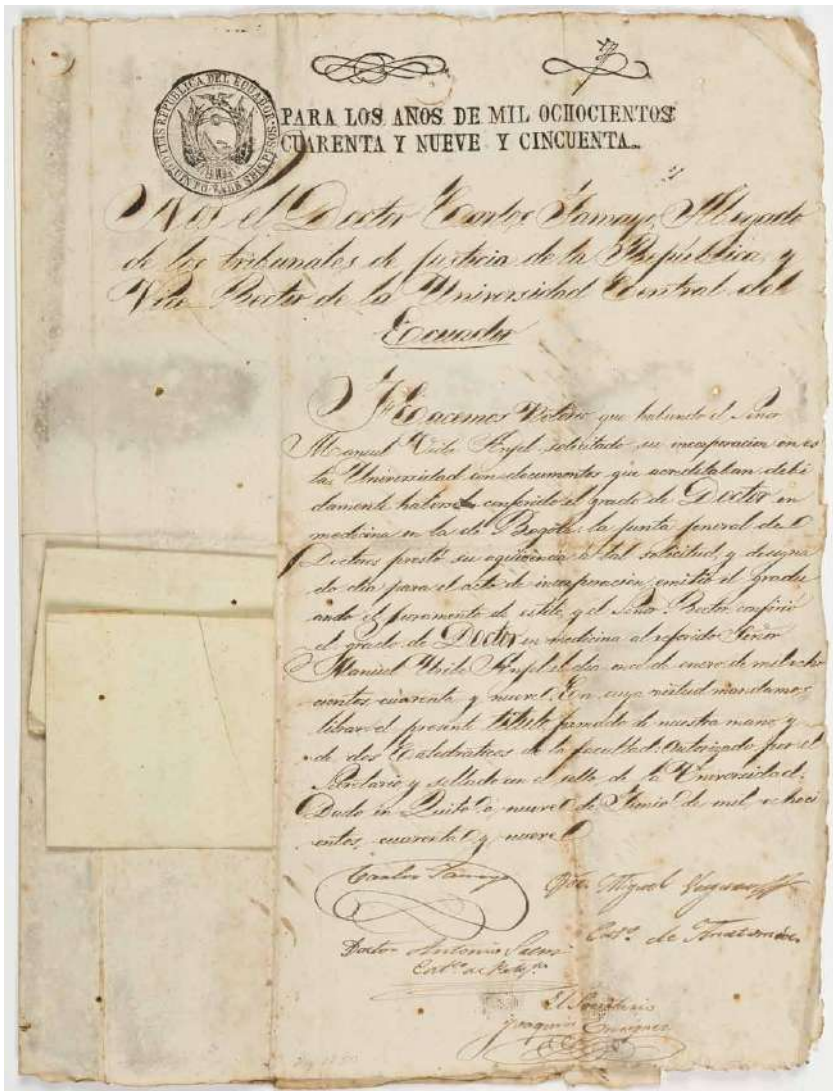 REPUBLICA DEL ECUADOR
SELLO QUINTO VALE SEIS PESOS
PARA LOS AÑOS DE MIL OCHOCIENTOS
CUARENTA Y NUEVE Y CINCUENTA.
Nos el Doctor Carlos Tamayo, Abogado
de los tribunales de justicia de la República, y
Vice Rector de la Universidad Central del
Ecuador
Hacemos Notorio que habiendo el Señor
Manuel Uribe Anjel solicitado su incorporacion en es
ta Universidad con documentos que acreditaban debi
damente haberse conferido el grado de Doctor en
medicina en la de Bogotá: la junta jeneral de
Doctores prestó su aquiesencia a tal solicitud, y designa
do dia para el acto de incorporacion, emitió el gradu
ando el juramento de estilo, y el Señor Rector confirió
el grado de Doctor en medicina al referido Señor
Manuel Uribe Anjel el dia once de enero de mil ocho
cientos, cuarenta y nueve. En cuya virtud mandamos
librar el presente titulo, firmado de nuestra mano y
de dos Catedráticos de la facultad: autorizado por el
Secretario, y sellado con el sello de la Universidad.
Dado en Quito a nueve de Junio de mil, ochoci
entos, cuarenta y nueve
Carlos Tamayo
Miguel
Doctor Antonio Saenz
Cat.º de
Cat.º de Anatomia
El Secretario
Joaquin Enriquez